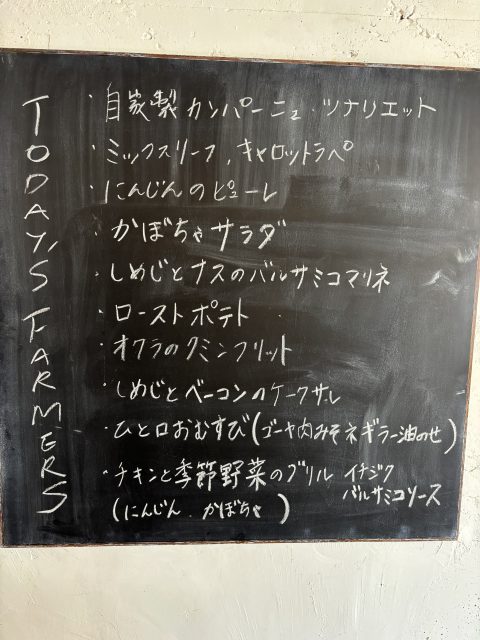 TODAY'S FARMERS
・自家製カンパーニュ・ツナリエット
・ミックスリーフ、キャロットラペ
・にんじんのピューレ
・かぼちゃサラダ
・しめじとナスのバルサミコマリネ
・ローストポテト
・オクラのクミンフリット
・しめじとベーコンのケークサレ
・ひと口おむすび(ゴーヤ肉みそネギラー油のせ)
・チキンと季節野菜のグリル イチジク
バルサミコソース
(にんじん、かぼちゃ)